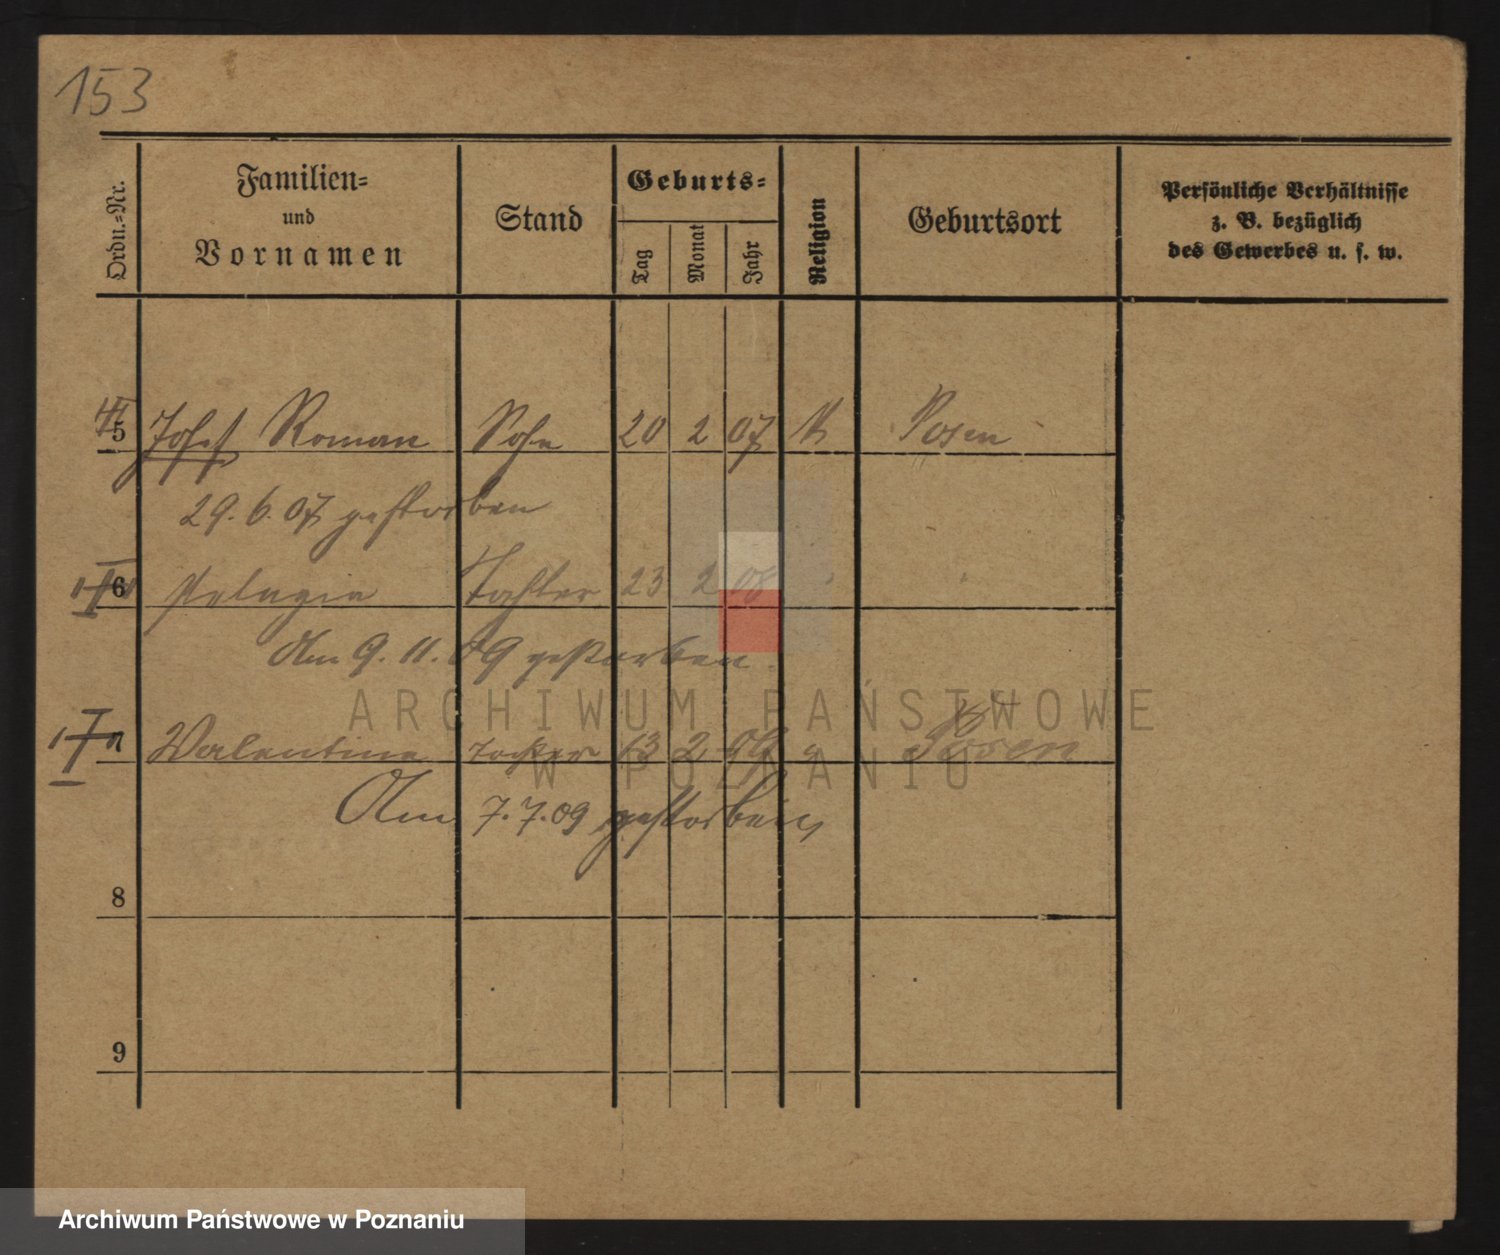 153
Ordn.-Nr.
Familien-
und
Vornamen
Stand
Geburts-
Tag
Monat
Jahr
Religion
Geburtsort
Persönliche Verhältnisse
z. B. bezüglich
des Gewerbes u. s. w.
5 Josef Roman Sohn 20 2 07 k Posen
29.6.07 gestorben
6 Pelagia Tochter 23 2 08
Am 9.11.09 gestorben
Valentine Tochter 13 2 09 Posen
Am 7.7.09 gestorben
8
9
ARCHIWUM PAŃSTWOWE
W POZNANIU
Archiwum Państwowe w Poznaniu